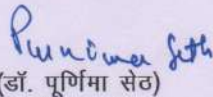 Purnima Seth
(डॉ. पूर्णिमा सेठ)